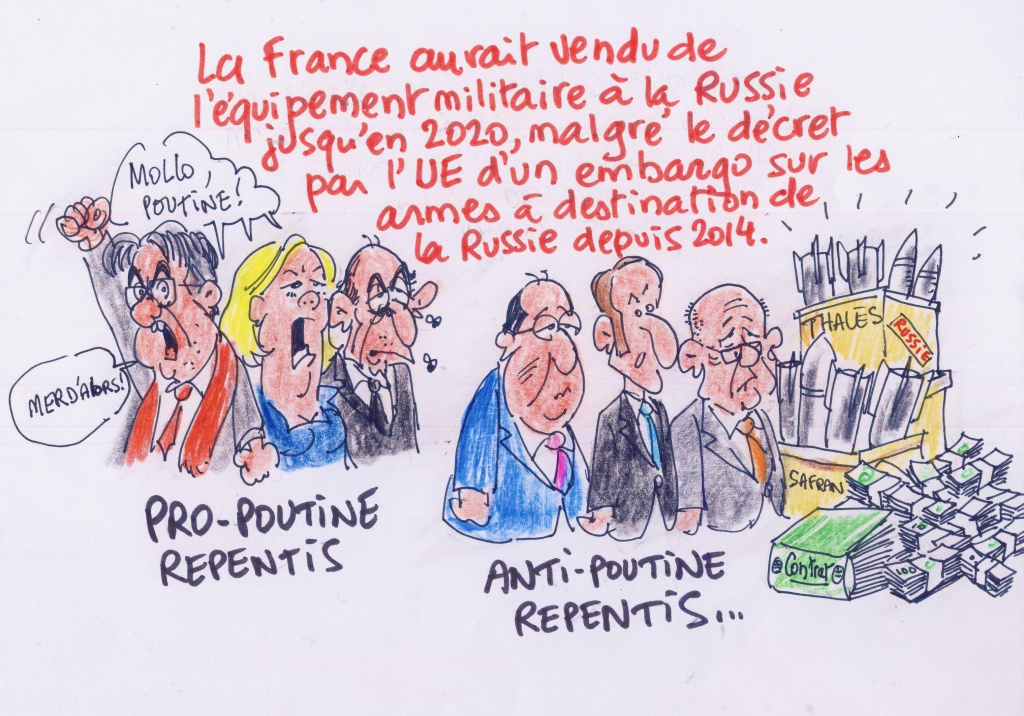 La France aurait vendu de
l'équipement militaire à la Russie
jusqu'en 2020, malgré le décret
par l'UE d'un embargo sur les
armes à destination de
la Russie depuis 2014.
MOLLO,
POUTINE!
MERD'ALORS!
THALES
RUSSIE
SAFRAN
Contrat
100
PRO-POUTINE
REPENTIS
ANTI-POUTINE
REPENTIS...